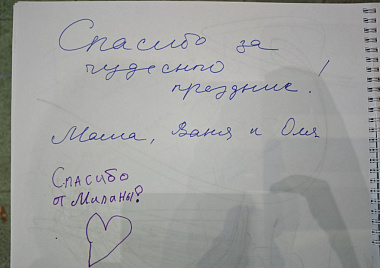 Спасибо за
чудесного
праздник!
Маша, Ваня и Оля
Спасибо
от Миланы!